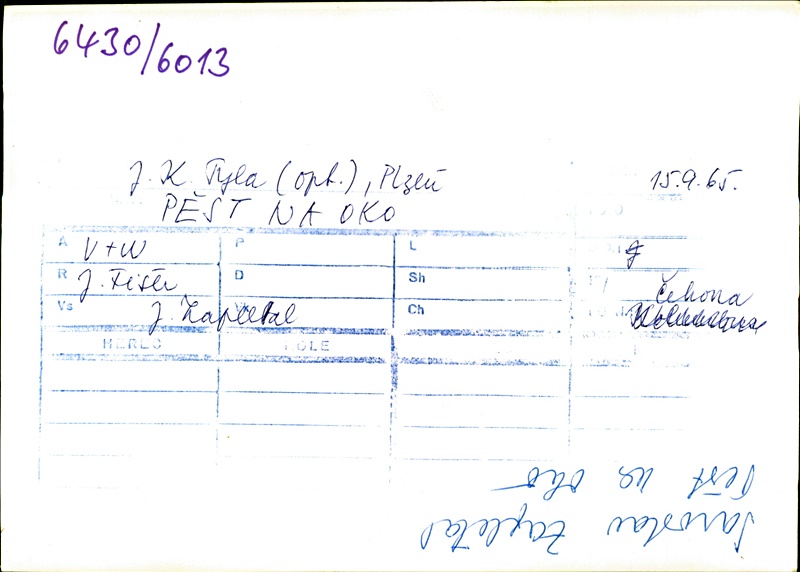 6430/6013
J. K. Tyla (opt.), Plzeň 15.9.65.
PĚST NA OKO
A V+W P L
R J. Fišer D Sh
Vs J. Zapletal Ch Čihona
HEREC ROLE
Jaroslav Zapletal
Pěst na oko